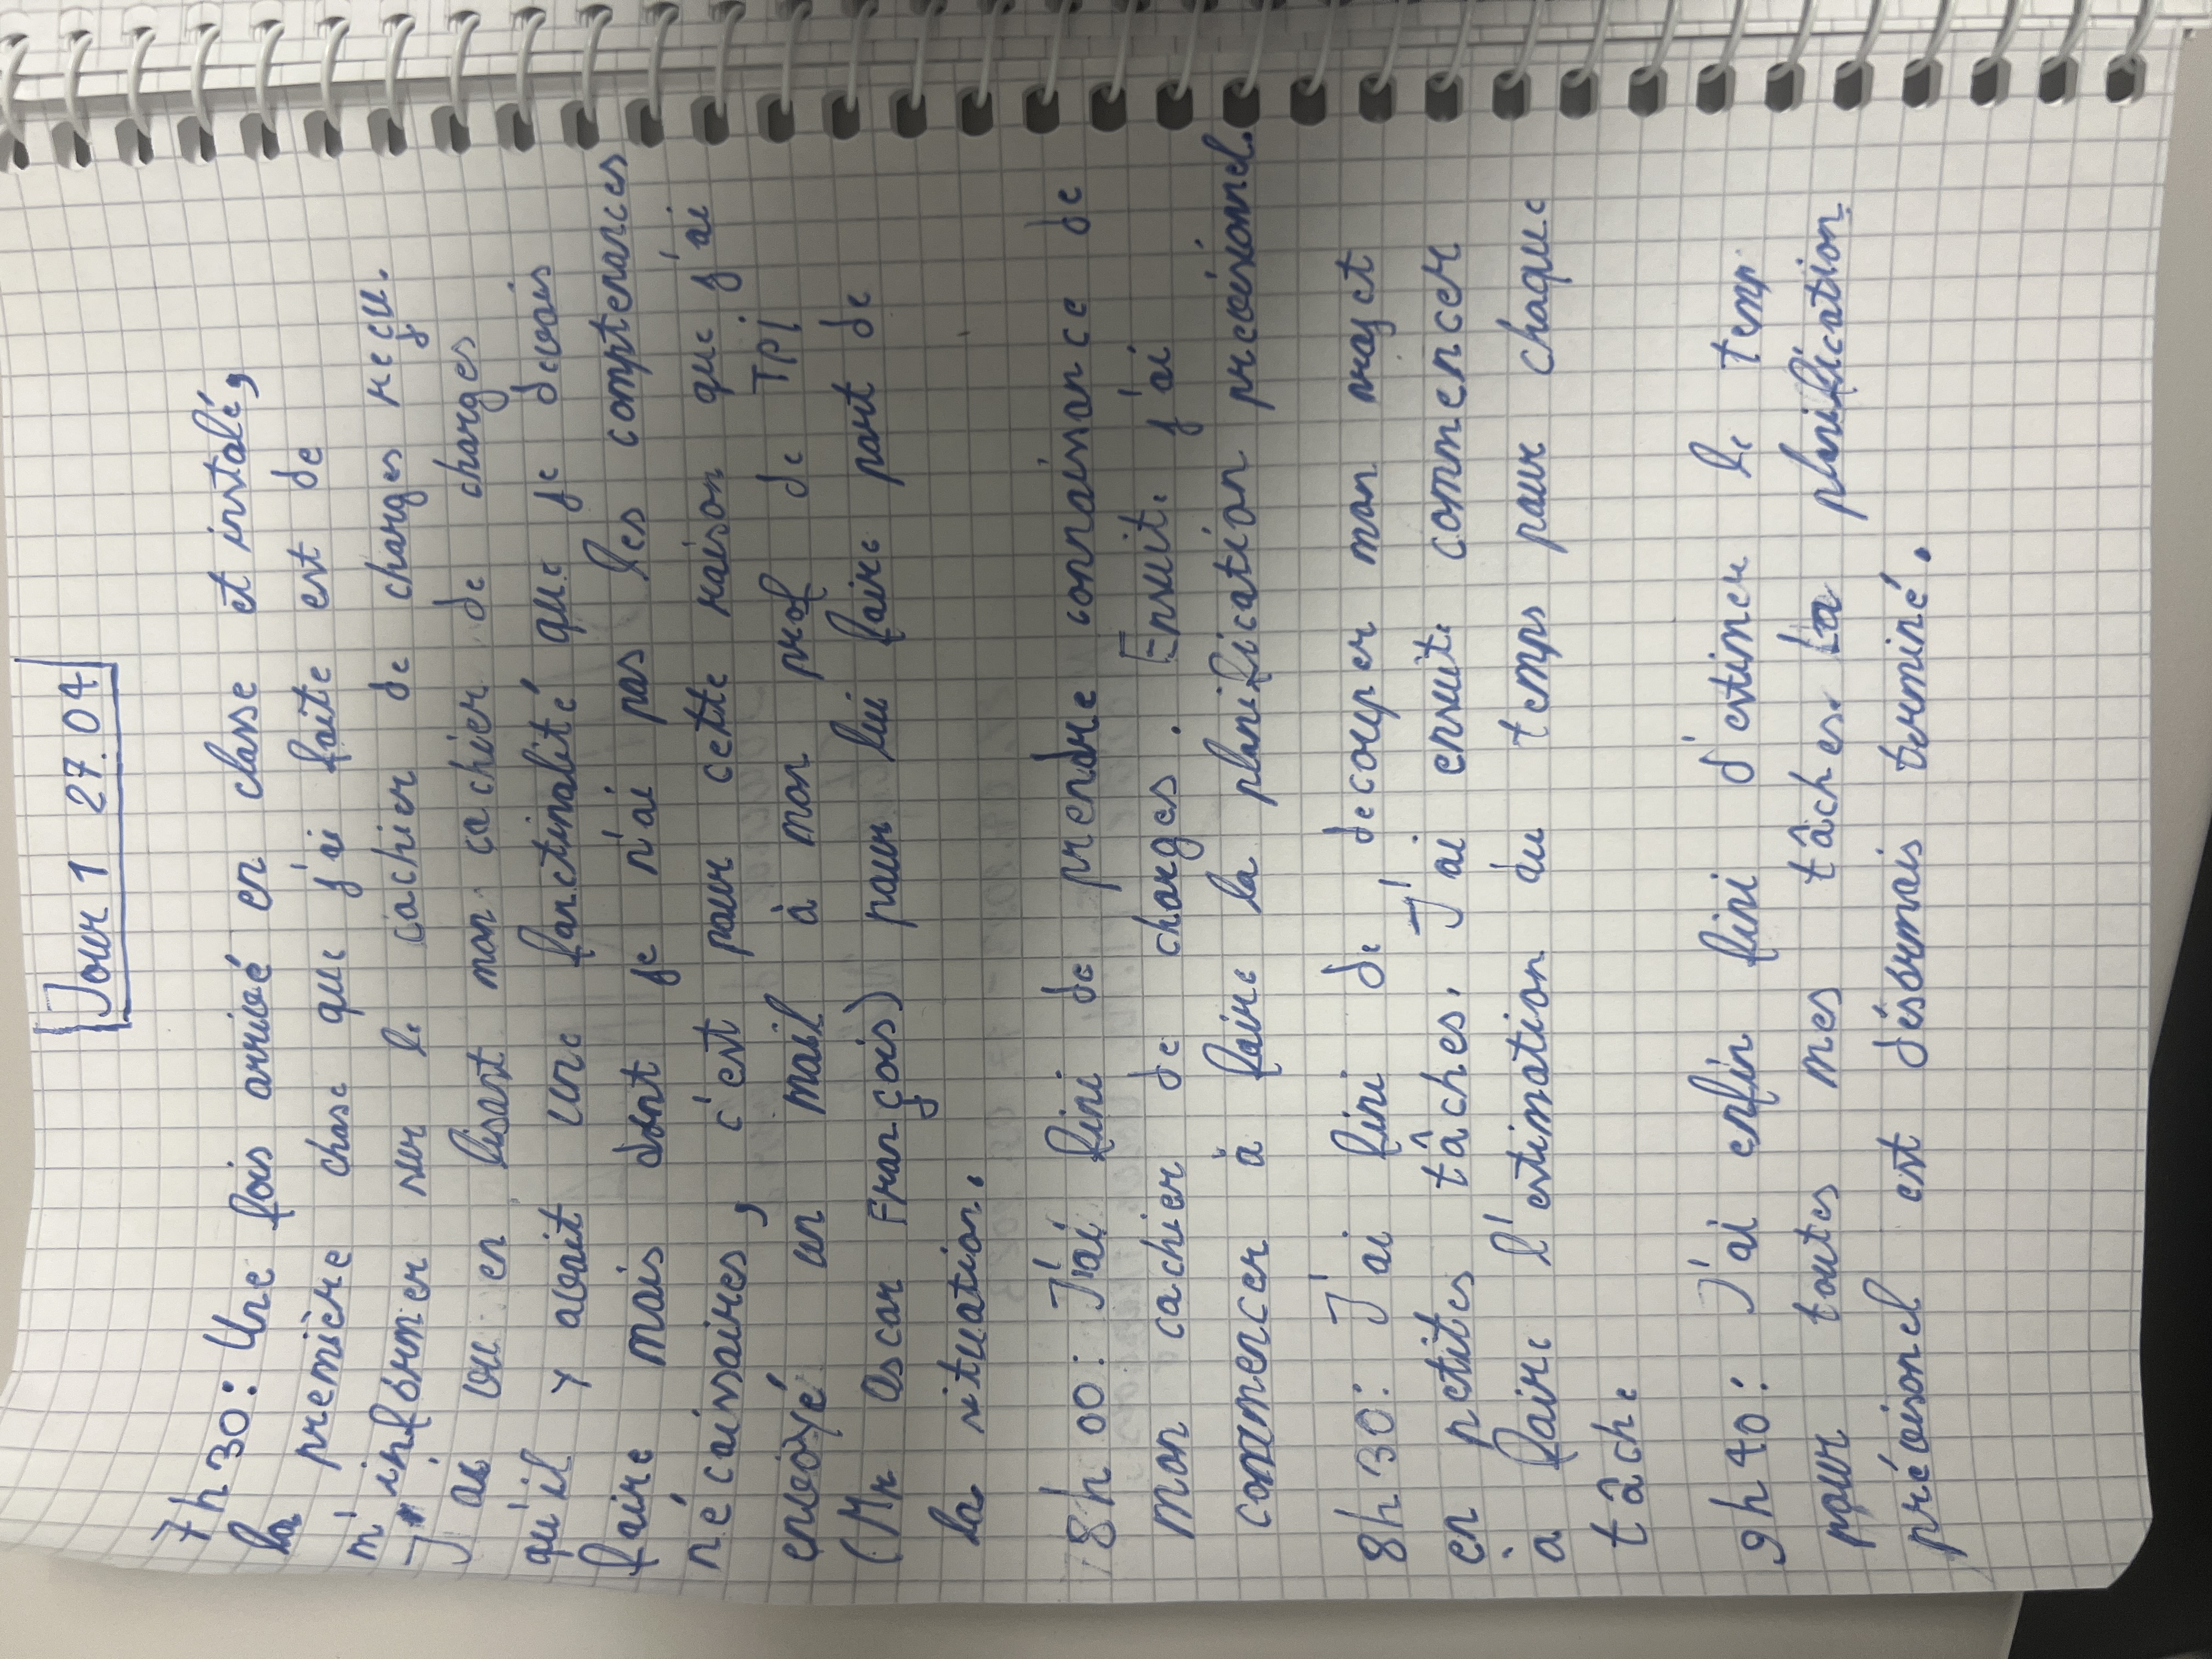 Jour 1 27.04
7h30: Une fois arrivé en classe et instalé,
la première chose que j'ai faite est de
m'informer sur le cachier de charges reçu.
J'ai vu en lisant mon cachier de charges
qu'il y avait une fonctinalité que je devais
faire mais dont je n'ai pas les comptenances
nécaissaires, c'est pour cette raison que j'ai
envoyé un mail à mon prof de TPI
(Mr Oscar François) pour lui faire part de
la situation.
8h00: J'ai fini de prendre connaissance de
mon cachier de charges. Ensuite j'ai
commencer à faire la planification previsionnel.
8h30: J'ai fini de decouper mon projet
en petites tâches. J'ai ensuite commencer
à faire l'estimation du temps pour chaque
tâche
9h40: J'ai enfin fini d'estimer le temp
pour toutes mes tâches. La planification
prévisonel est désormais terminé.